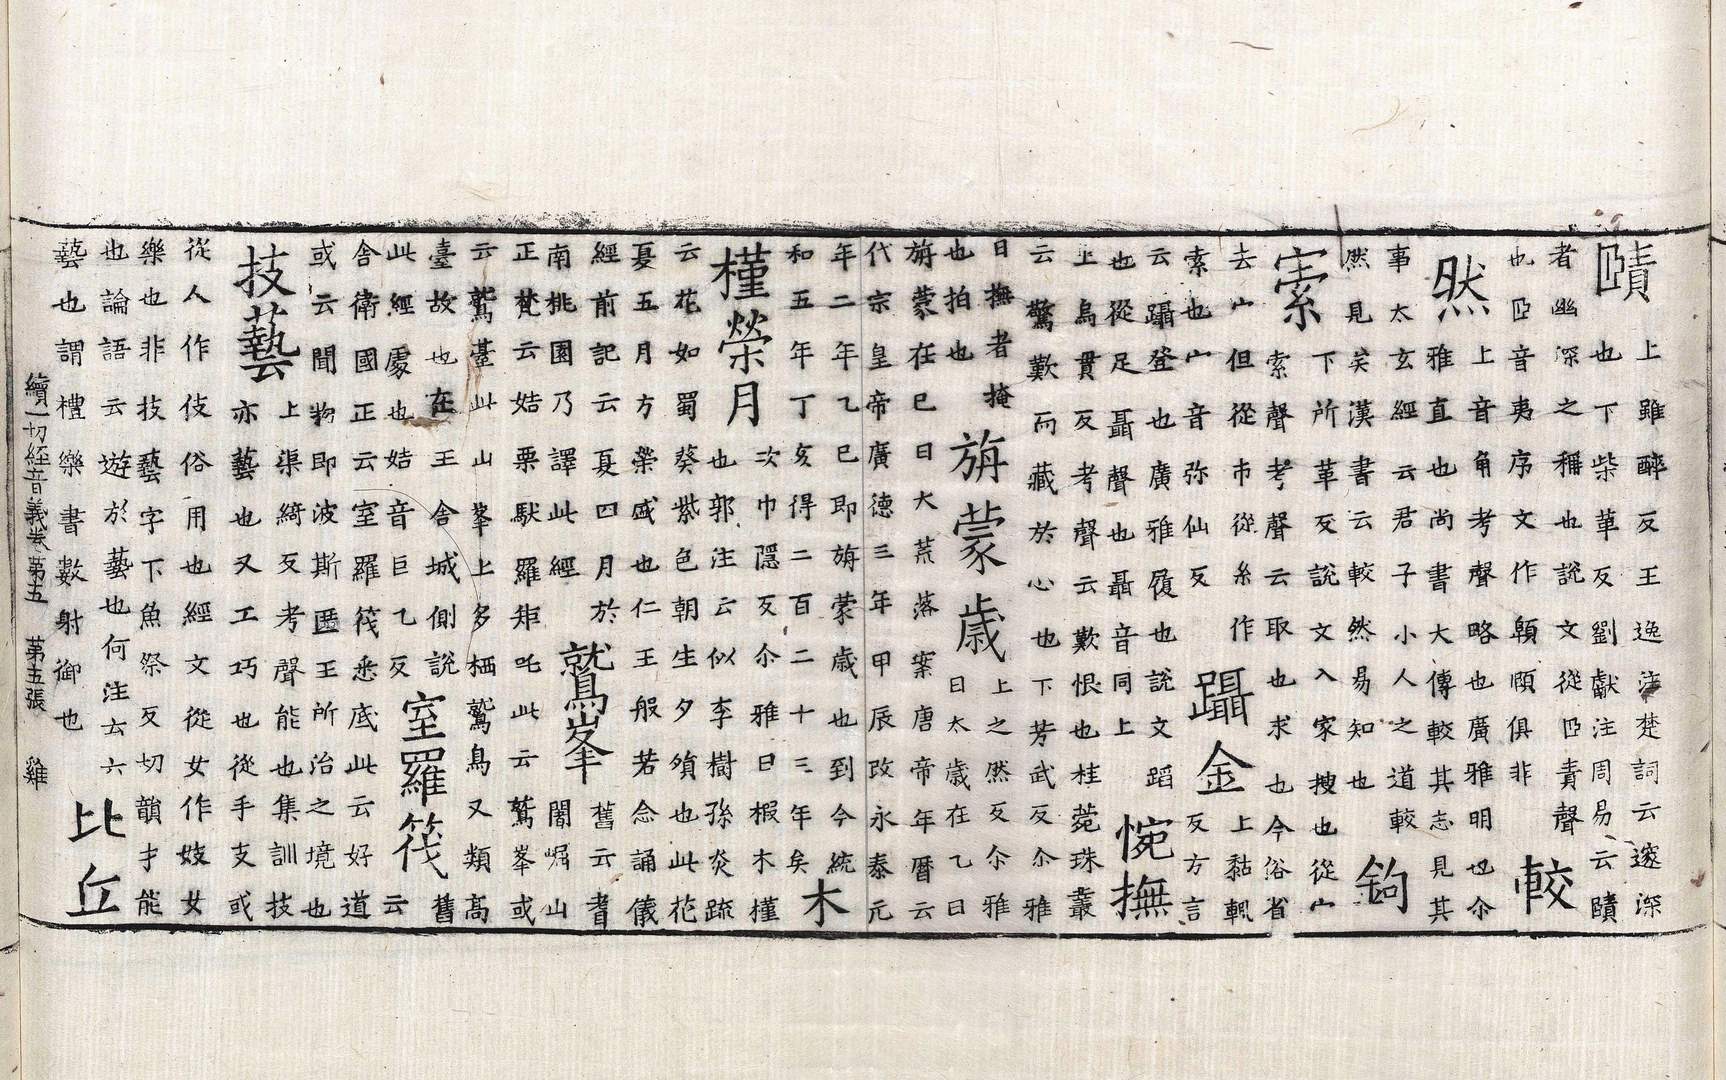 賾
上雖醉反王逸注楚詞云邃深
也下柴革反劉瓛注周易云賾
者幽深之稱也說文從𦣞責聲
也𦣞音夷序文作頤俱非
較
然
上音角考聲略也廣雅明也尒
雅直也尚書大傳較其志見其
事太玄經云君子小人之道較
然見矣漢書云較然易知也
鉤
索
下所革反說文入家搜也從宀
索聲考聲云取也求也今俗省
去宀但從市從糸作
索也宀音弥仙反
躡金
上黏輒
反方言
云躡登也廣雅履也說文蹈
也從足聶聲也聶音同上
惋撫
上烏貫反考聲云歎恨也桂菀珠叢
云驚歎而藏於心也下芳武反尒雅
曰撫者掩
也拍也
旃蒙歳
上之然反尒雅
曰太歳在乙曰
旃蒙在巳曰大荒落案唐帝年曆云
代宗皇帝廣德三年甲辰改永泰元
年二年乙巳即旃蒙歳也到今統
和五年丁亥得二百二十三年矣
木
槿榮月
次巾隱反尒雅曰椵木槿
也郭注云似李樹孫炎疏
云花如蜀葵紫色朝生夕殞也此花
夏五月方榮盛也仁王般若念誦儀
經前記云夏四月於
南桃園乃譯此經
鷲峯
舊云耆
闍崛山
正梵云姞栗馱羅矩吒此云鷲峯或
云鷲臺此山峯上多栖鷲鳥又類高
臺故也在王舍城側說
此經處也姞音巨乙反
室羅筏
舊
云
舍衛國正云室羅筏悉底此云好道
或云聞物即波斯匿王所治之境也
技藝
上渠綺反考聲能也集訓技
亦藝也又工巧也從手支或
從人作伎俗用也經文從女作妓女
樂也非技藝字下魚祭反切韻才能
也論語云遊於藝也何注云六
藝也謂禮樂書數射御也
比丘
續一切經音義卷第五 第五張 雞